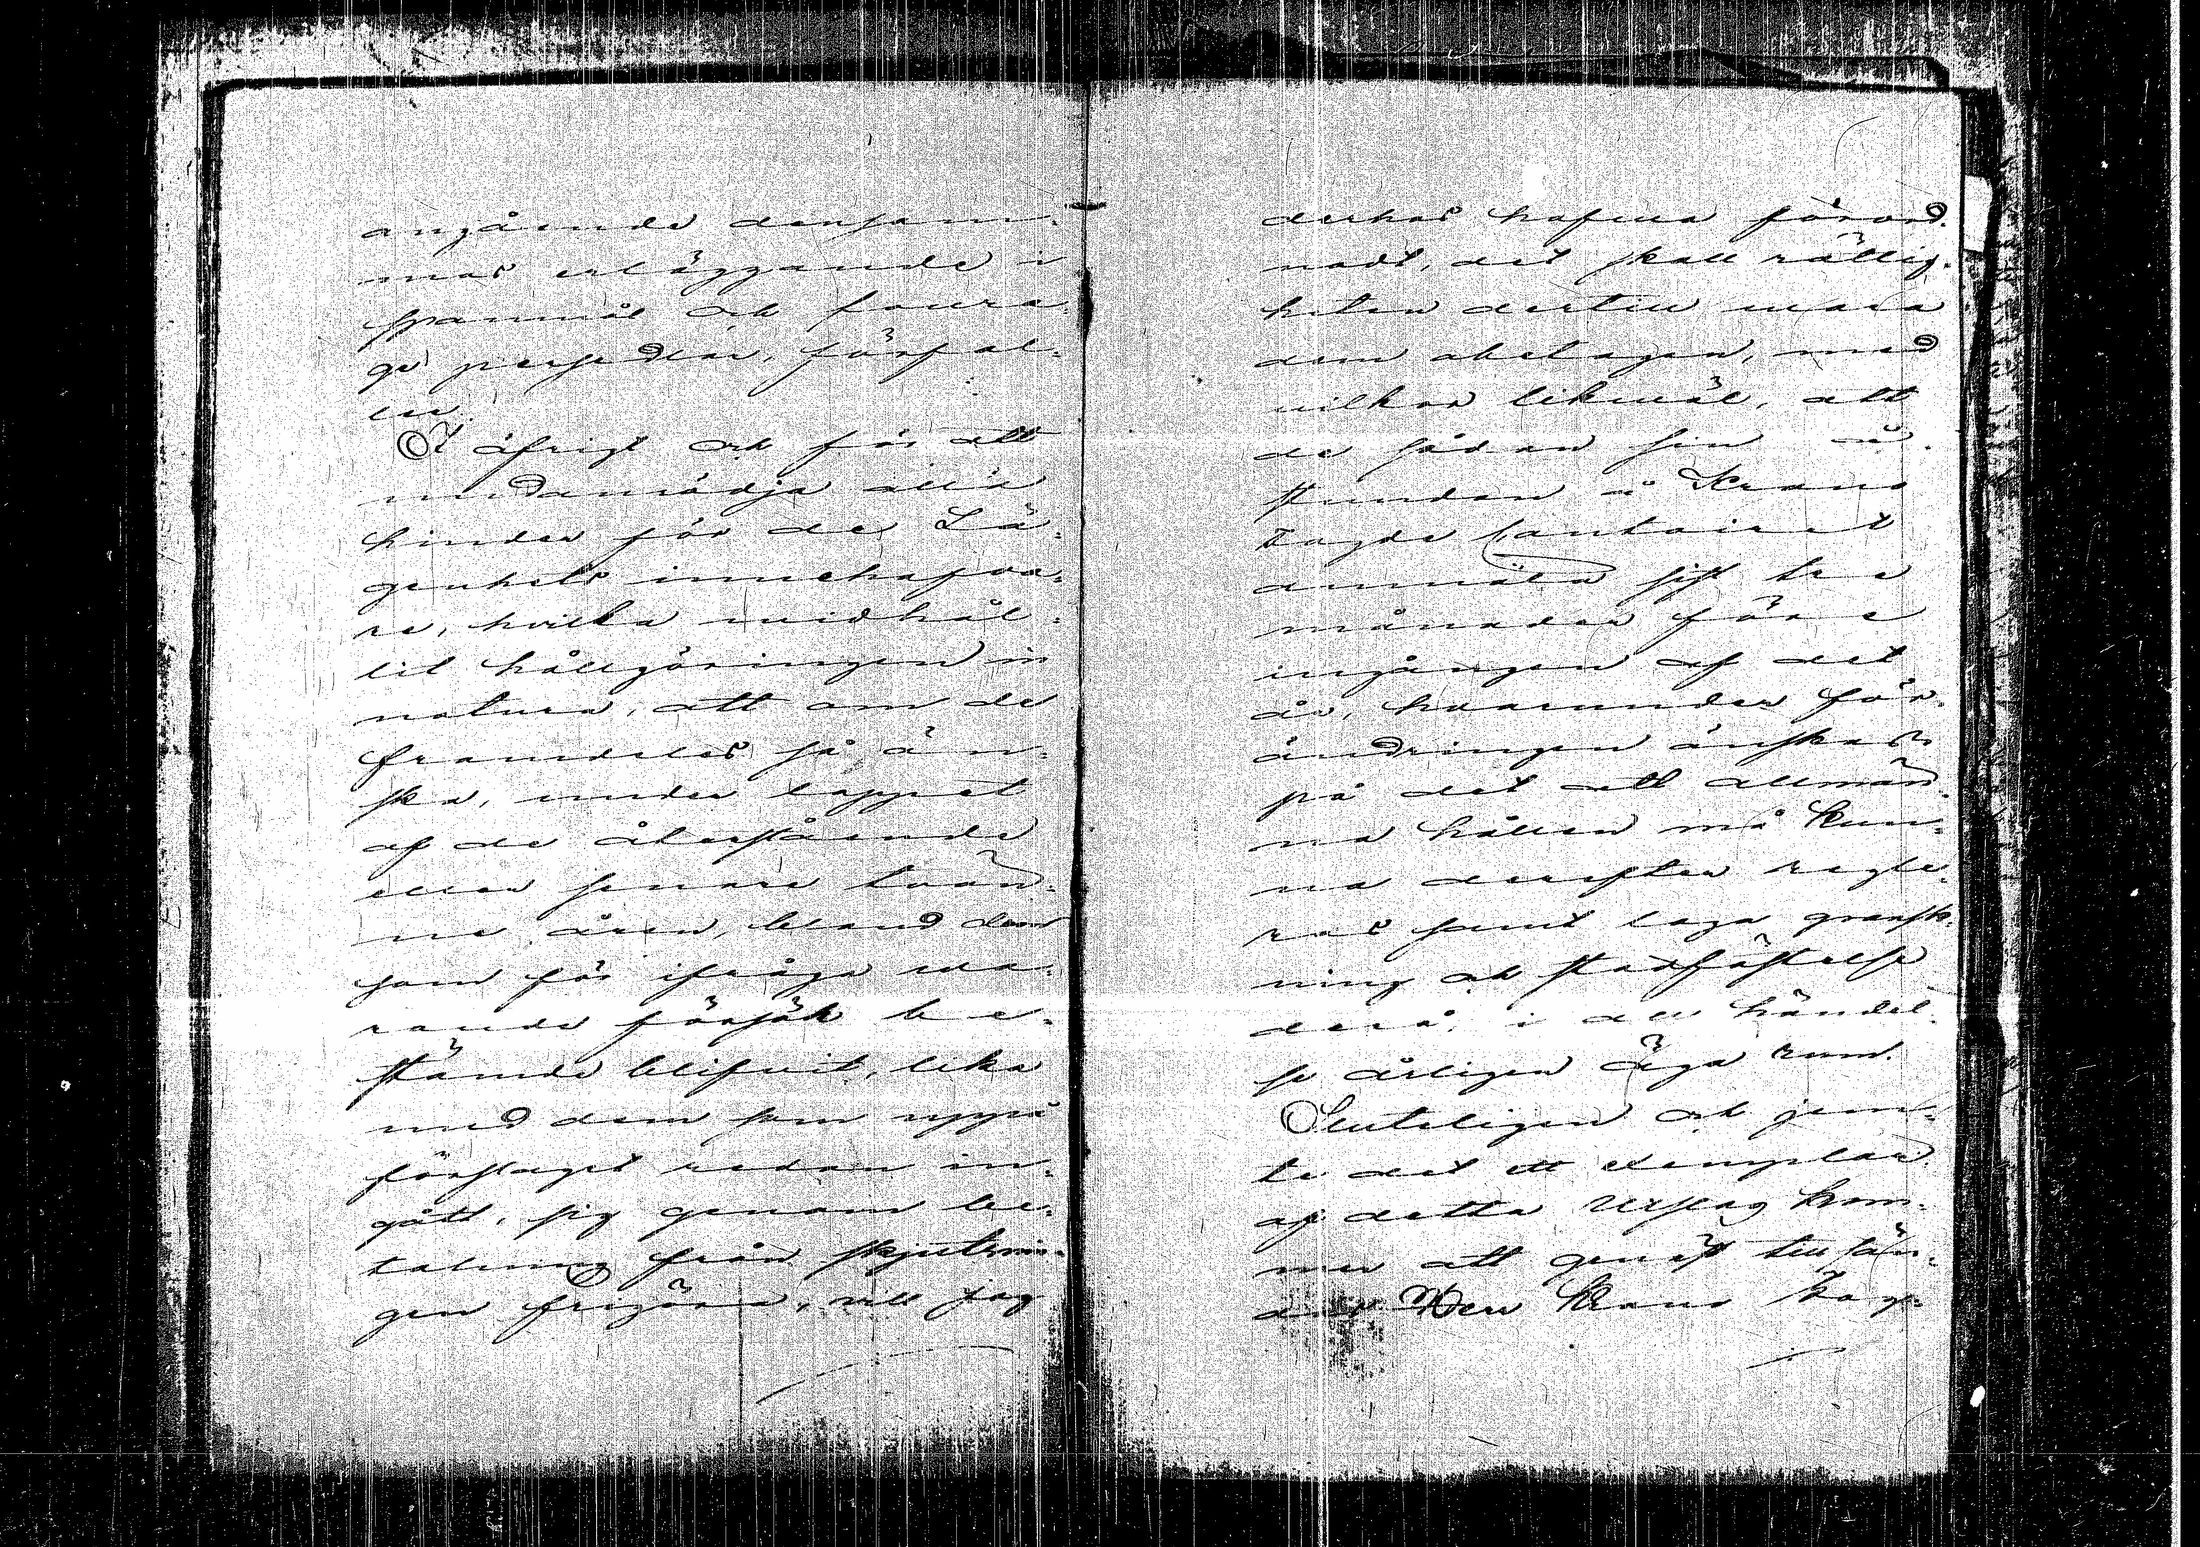 angående densam-
mas erläggande i
spannmål och foura-
ge persedlar, förfal-
ler.
I öfrigt och för att
undanrödja alla
hinder för de Lä-
genhets innehafva-
re, hvilka vidhål-
lit hållgöringen in
natura, att om de
framdeles så ön-
ska, under loppet
af de återstående
eller senare tvän-
ne åren, bland dem
som för ifråga va-
rande försök be-
stämde blifvit, lika
med dem som uppå
förslaget redan in-
gått, sig genom be-
talning från skjutsnin-
gen frigöra, vill jag
derhos hafva förord-
nadt, det skall rättig-
heten dertill vara
dem obetagen, med
vilkor likväl, att
de sådan sin å-
stundan å Krono
Fogde Contoiret
anmäla sist tre
månader före
ingången af det
år, hvarunder för-
ändringen önskas,
på det att allmän-
na hållen må kun-
na derefter regle-
ras samt laga gransk-
ning och stadfästelse
derå, i den händel-
se årligen äga rum.
Sluteligen och jem-
te det ett exemplar
af detta Utslag kom-
mer att genast tillsän-
das Herr Krono Fog-